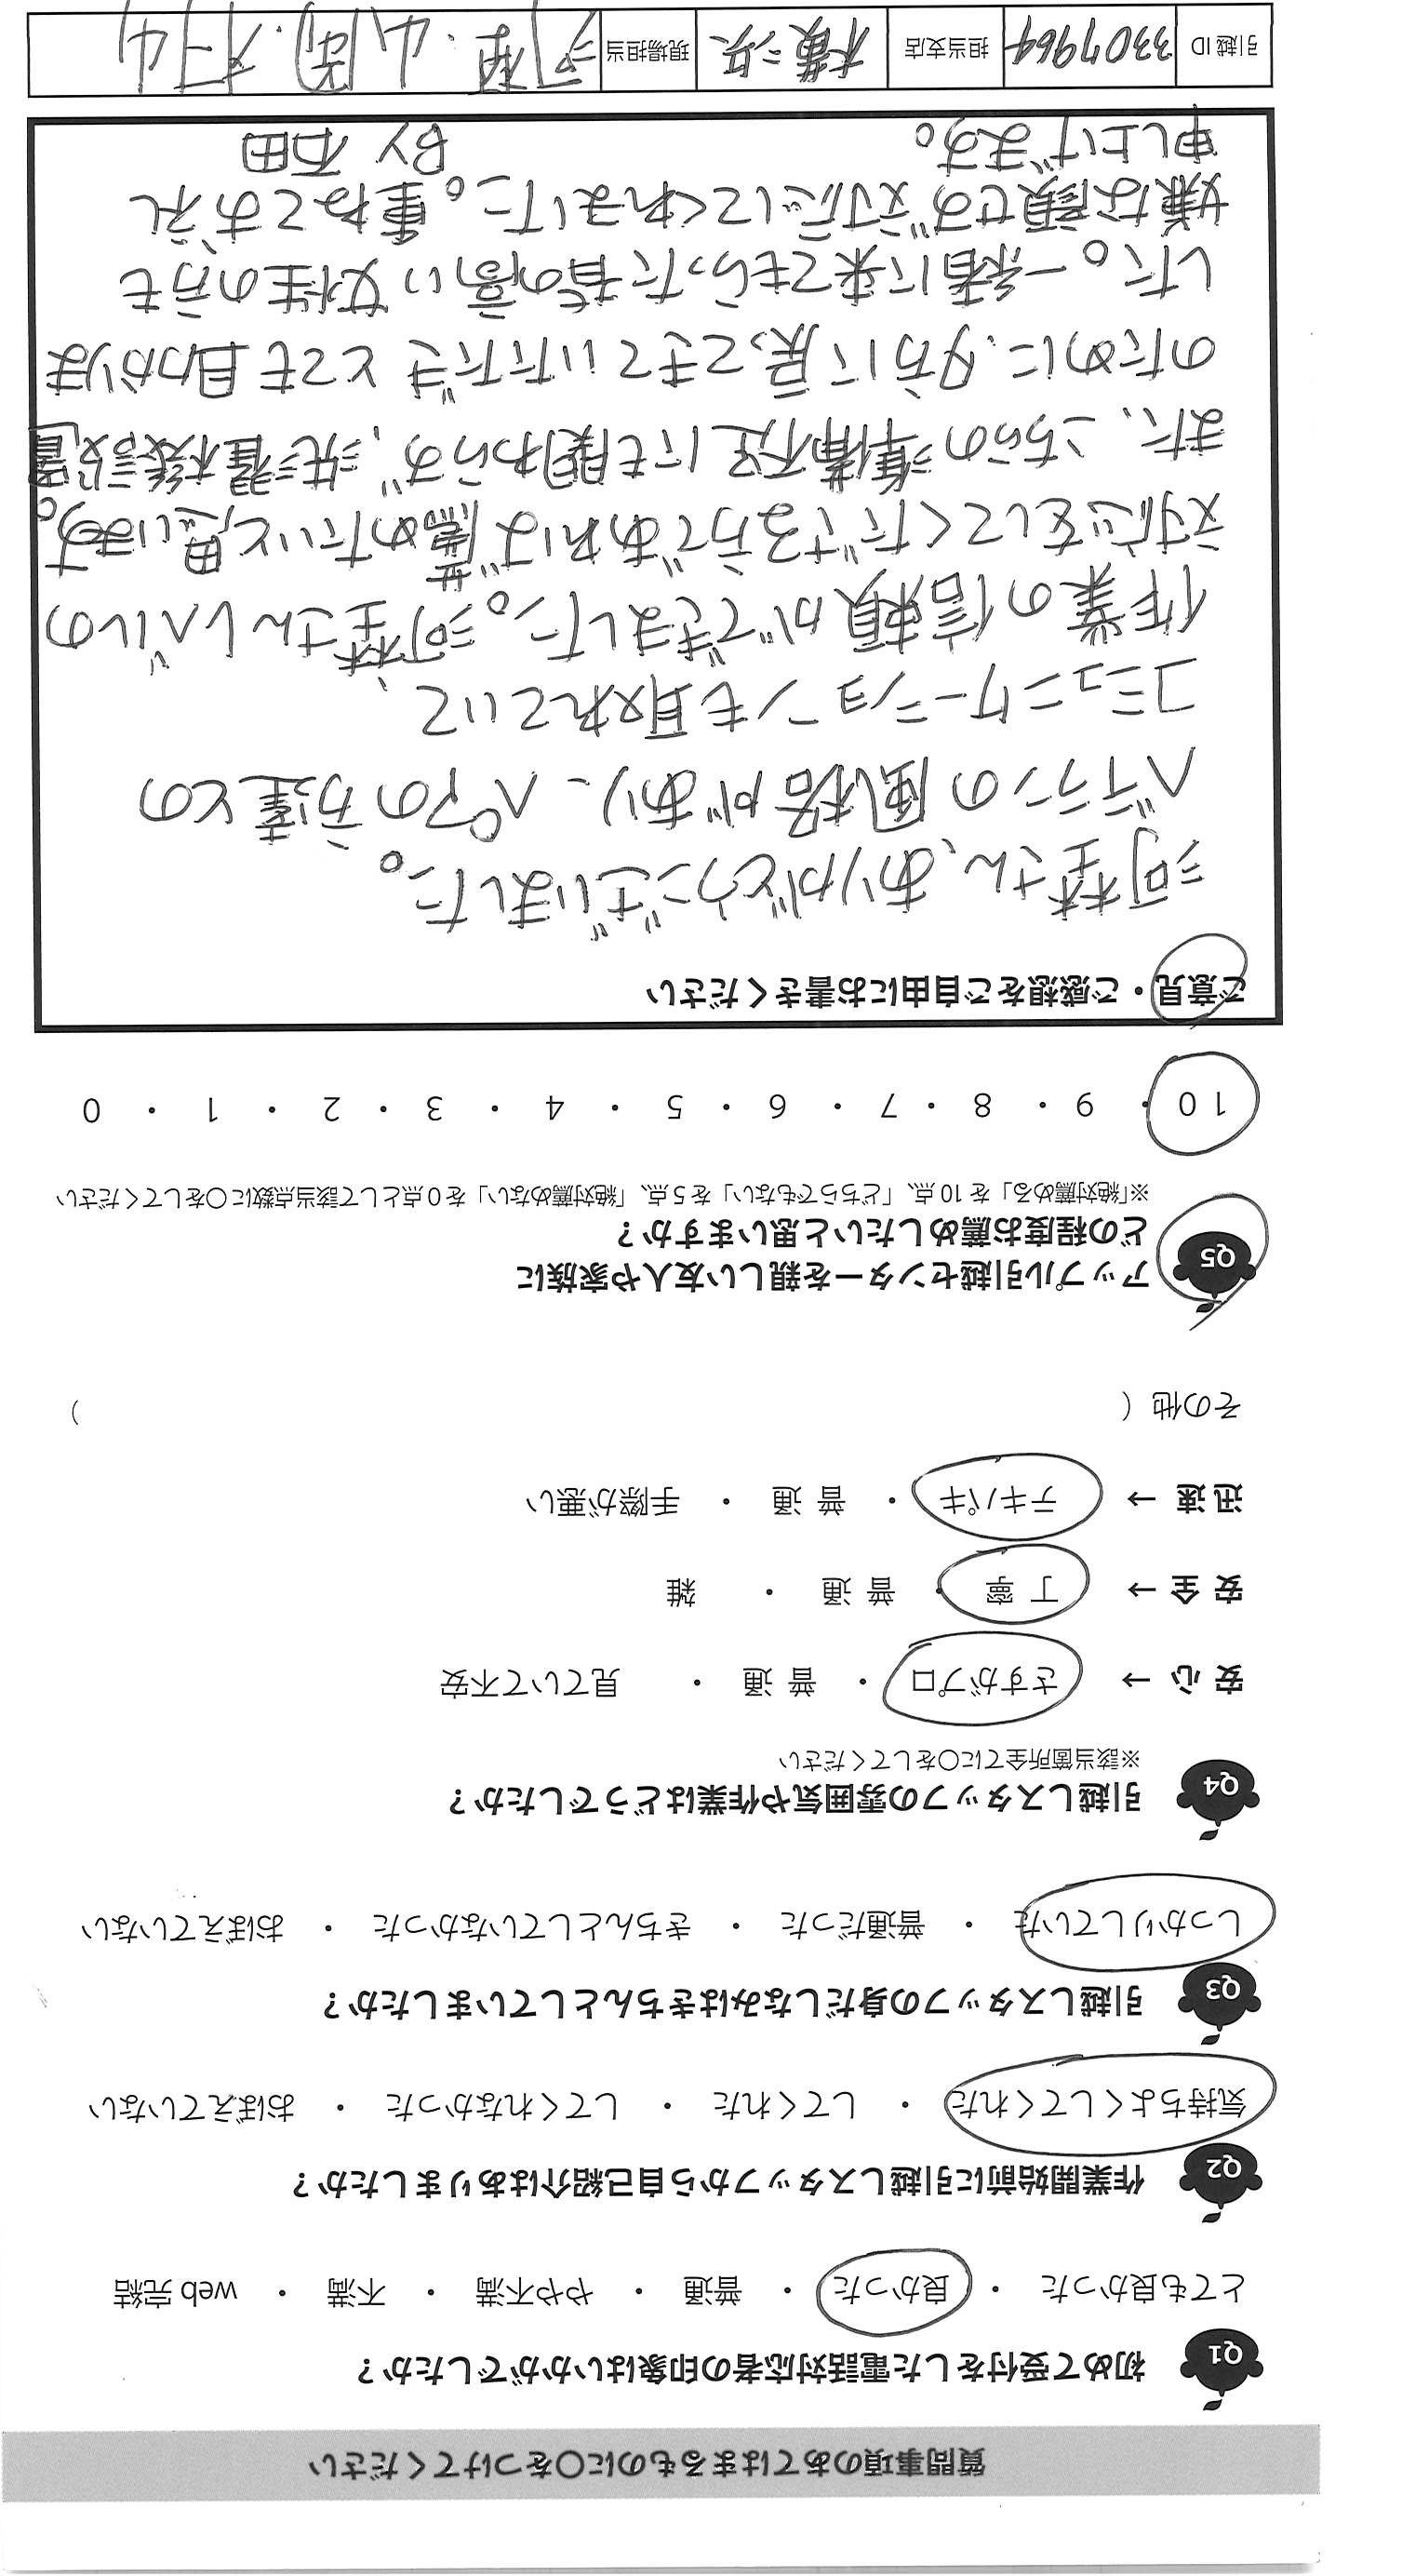 質問事項のあてはまるものに〇をつけてください
Q1 初めて受付をした電話対応者の印象はいかがでしたか？
とても良かった ・ 良かった ・ 普通 ・ やや不満 ・ 不満 ・ web 完結
Q2 作業開始前に引越しスタッフから自己紹介はありましたか？
気持ちよくしてくれた ・ してくれた ・ してくれなかった ・ おぼえていない
Q3 引越しスタッフの身だしなみはきちんとしていましたか？
しっかりしていた ・ 普通だった ・ きちんとしていなかった ・ おぼえていない
Q4 引越しスタッフの雰囲気や作業はどうでしたか？
※該当箇所全てに〇をしてください
安 心 → さすがプロ ・ 普 通 ・ 見ていて不安
安 全 → 丁 寧 ・ 普 通 ・ 雑
迅 速 → テキパキ ・ 普 通 ・ 手際が悪い
その他（ ）
Q5 アップル引越センターを親しい友人や家族に
どの程度お薦めしたいと思いますか？
※「絶対薦める」を 10 点、「どちらでもない」を 5 点、「絶対薦めない」を 0 点として該当点数に〇をしてください
10 ・ 9 ・ 8 ・ 7 ・ 6 ・ 5 ・ 4 ・ 3 ・ 2 ・ 1 ・ 0
ご意見・ご感想をご自由にお書きください
河埜さん、ありがとうございました。
ベテランの風格があり、ペアの方達との
コミュニケーションも取れていて、
作業の信頼ができました。河埜さんレベルの
対応をしてくださる方であれば薦めたいと思います。
また、こちらの準備不足にも関わらず、洗濯機設置
のために、夕方に戻ってきていただきとても助かりま
した。一緒に来てもらった背の高い女性の方も
嫌な顔せず対応してくれました。重ねてお礼
申し上げます。 BY 石田
引越 ID 3307964 担当支店 横浜 現場担当 河埜・山